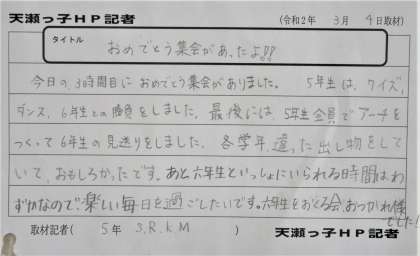 天瀬っ子HP記者 (令和2年 3月 4日取材)
タイトル
おめでとう集会があったよ!!
今日の、3時間目におめでとう集会がありました。 5年生は、クイズ、
ダンス、6年生との勝負をしました。最後には、5年生全員でアーチを
つくって6年生の見送りをしました。各学年、違った出し物をして
いて、おもしろかったです。あと六年生といっしょにいられる時間はわ
ずかなので、楽しい毎日を過ごしたいです。六年生をおくる会、おつかれ様
でした!
取材記者( 5年 S.R.K M ) 天瀬っ子HP記者